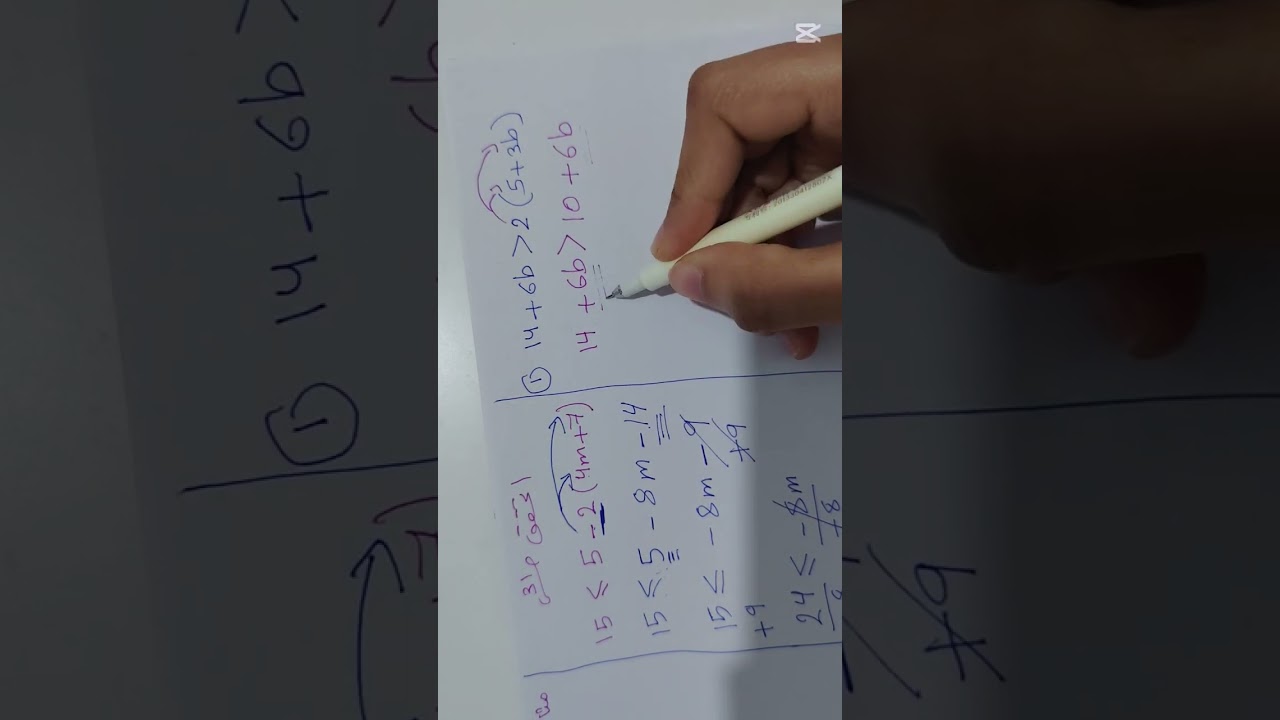 ① 14 + 6b > 2(5+3b)
14 + 6b > 10 + 6b
15 ≤ 5 - 2(4m+7)
15 ≤ 5 - 8m - 14
15 ≤ - 8m - 9
+9 +9
24 ≤ -8m
-8